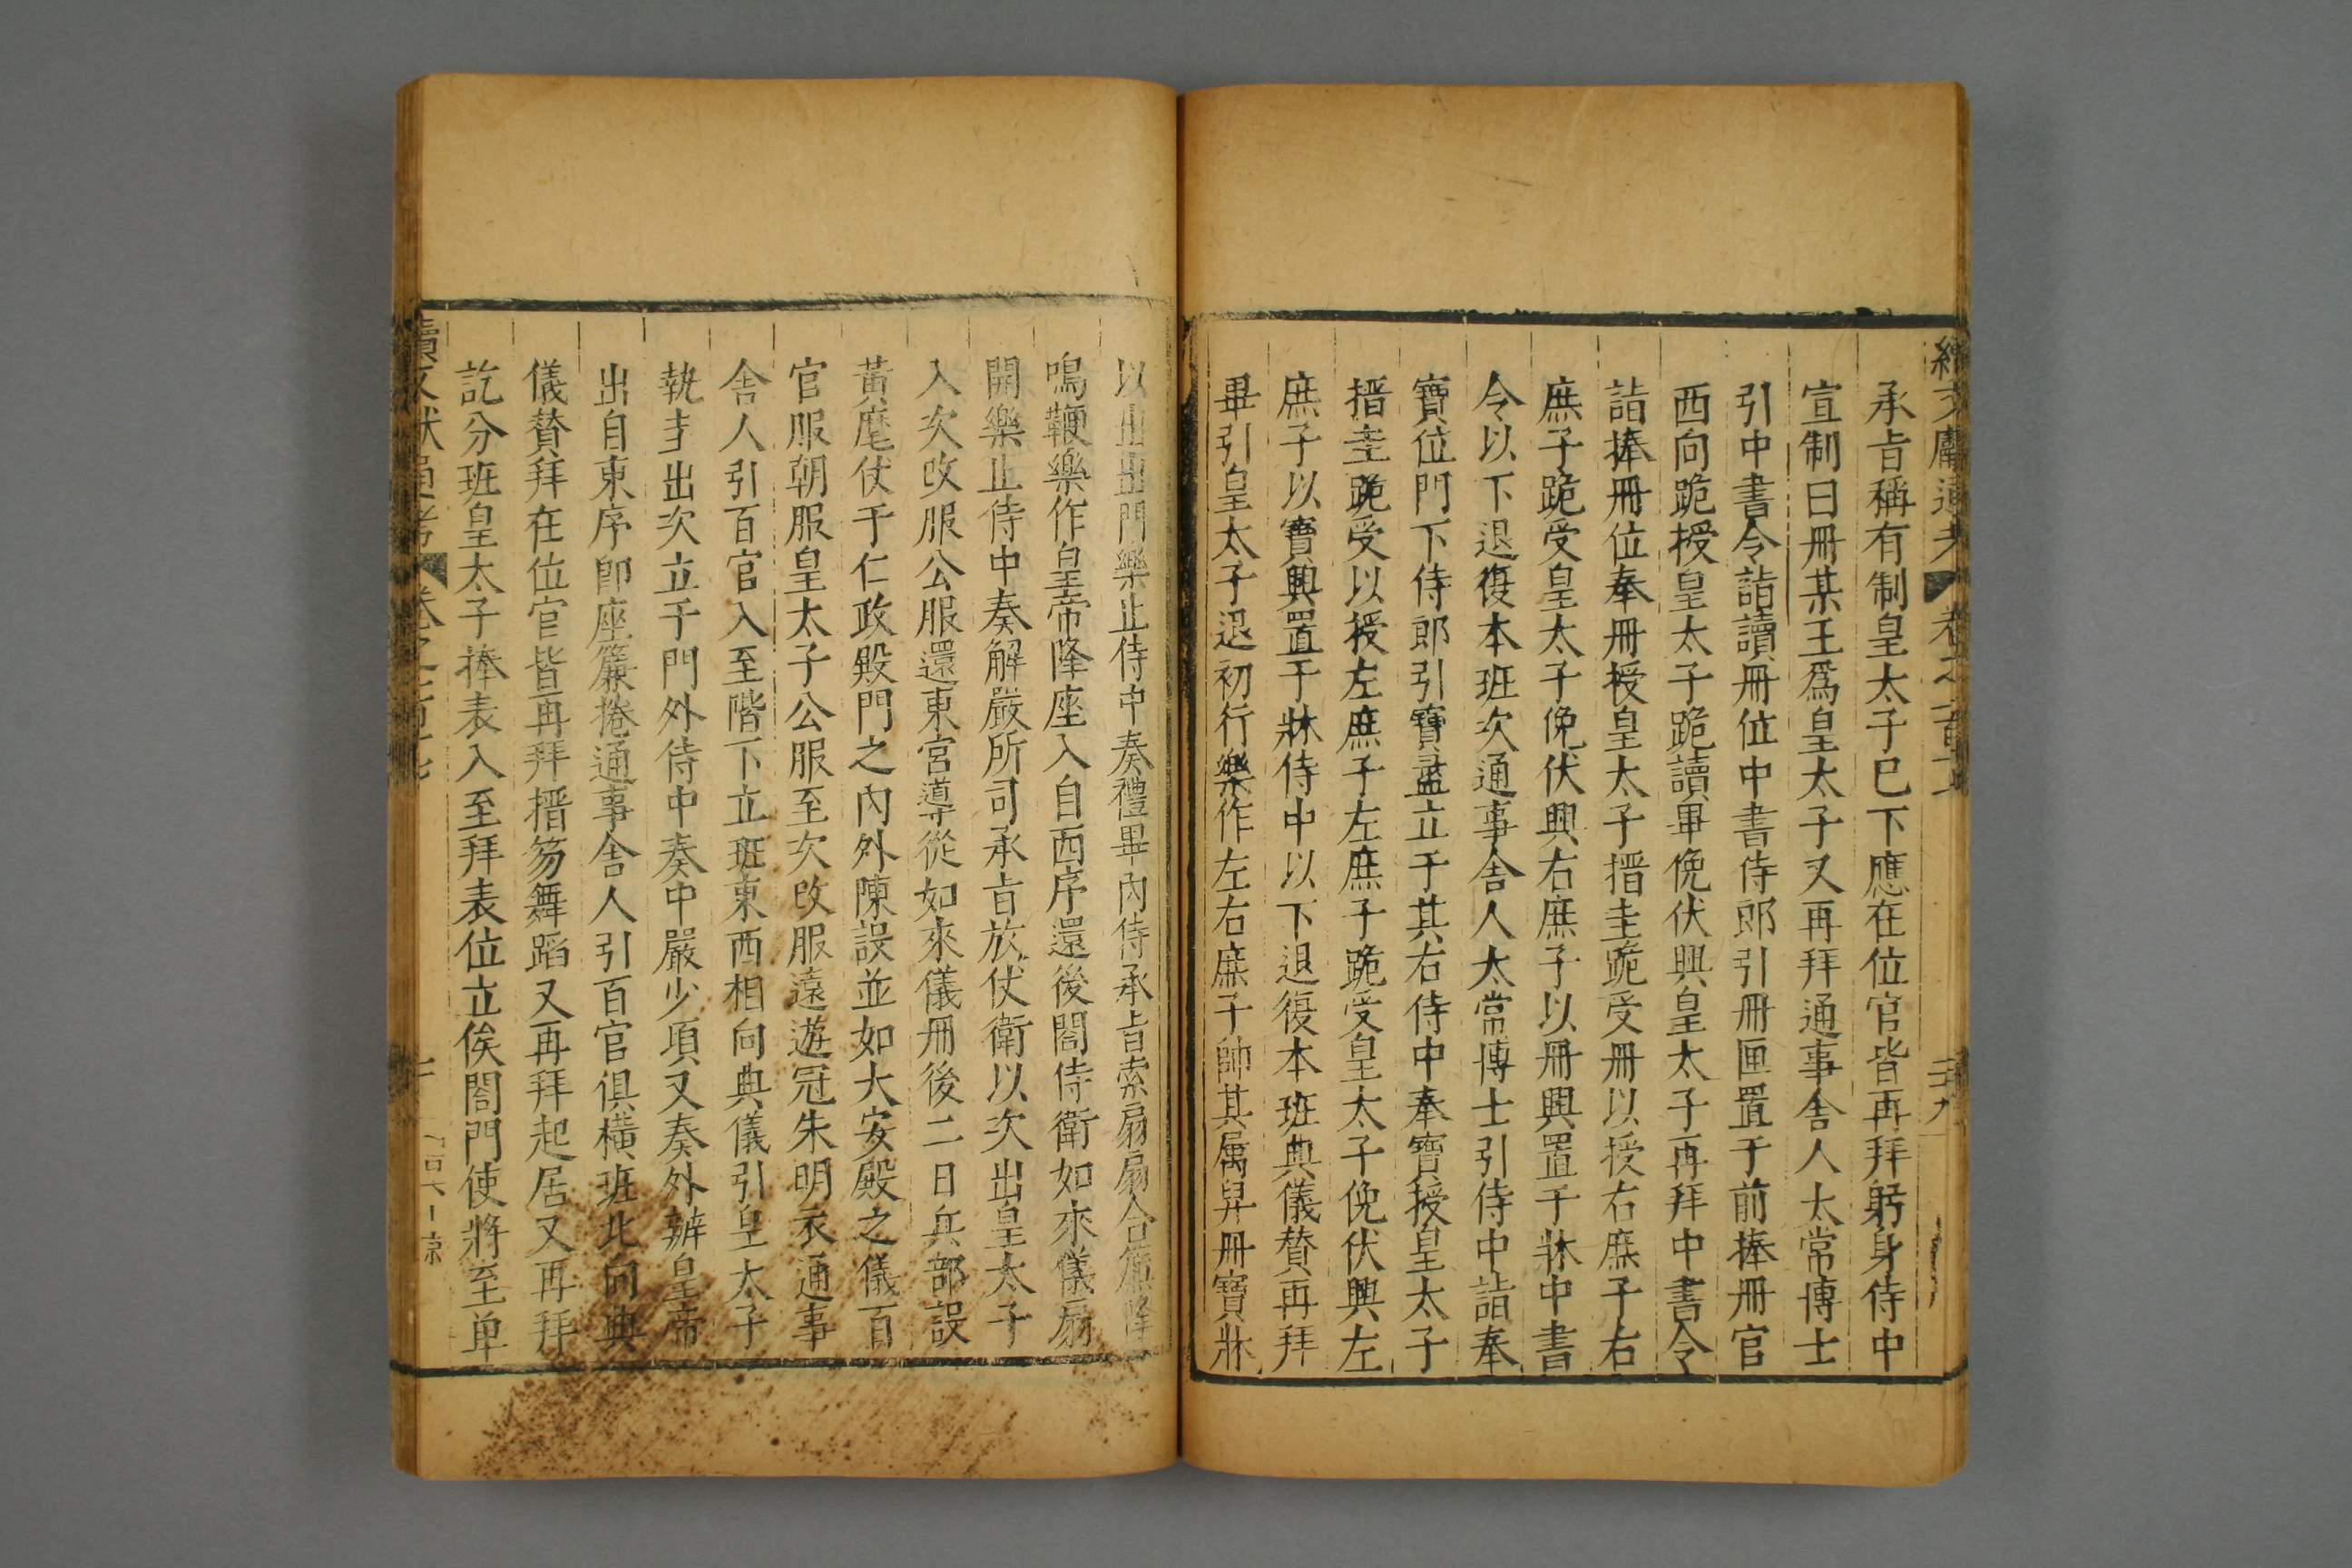 承旨稱有制皇太子已下應在位官皆再拜躬身侍中
宣制曰冊某王爲皇太子又再拜通事舍人太常博士
引中書令詣讀冊位中書侍郎引冊匣置于前捧冊官
西向跪授皇太子跪讀畢俛伏興皇太子再拜中書令
詣捧冊位奉冊授皇太子搢圭跪受冊以授右庶子右
庶子跪受皇太子俛伏興右庶子以冊興置于牀中書
令以下退復本班次通事舍人太常博士引侍中詣奉
寶位門下侍郎引寶盝立于其右侍中奉寶授皇太子
搢圭跪受以授左庶子左庶子跪受皇太子俛伏興左
庶子以寶興置于牀侍中以下退復本班典儀贊再拜
畢引皇太子退初行樂作左右庶子帥其属舁冊寶牀
以出出門樂止侍中奏禮畢內侍承旨索扇扇合簾降
鳴鞭樂作皇帝降座入自西序還後閤侍衛如來儀扇
開樂止侍中奏解嚴所司承旨放仗衛以次出皇太子
入次改服公服還東宮導從如來儀冊後二日兵部設
黃麾仗于仁政殿門之內外陳設並如大安殿之儀百
官服朝服皇太子公服至次改服遠遊冠朱明衣通事
舍人引百官入至階下立班東西相向典儀引皇太子
執圭出次立于門外侍中奏中嚴少項又奏外辦皇帝
出自東序卽座簾捲通事舍人引百官俱橫班北向典
儀贊拜在位官皆再拜搢笏舞蹈又再拜起居又再拜
訖分班皇太子捧表入至拜表位立俟閤門使將至单